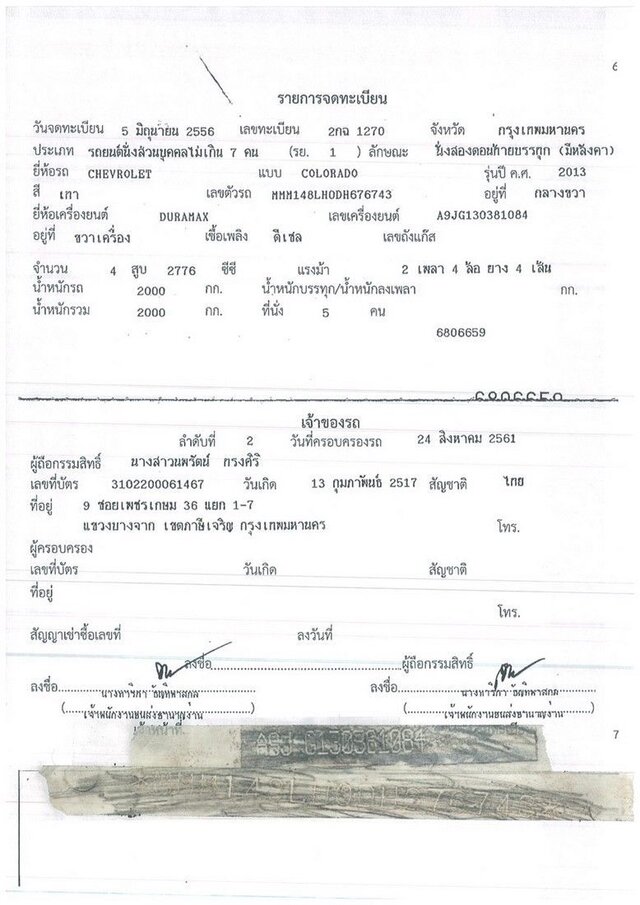 6
รายการจดทะเบียน
วันจดทะเบียน 5 มิถุนายน 2556 เลขทะเบียน 2กฉ 1270 จังหวัด กรุงเทพมหานคร
ประเภท รถยนต์นั่งส่วนบุคคลไม่เกิน 7 คน (รย. 1 ) ลักษณะ นั่งสองตอนท้ายบรรทุก (มีหลังคา)
ยี่ห้อรถ CHEVROLET แบบ COLORADO รุ่นปี ค.ศ. 2013
สี เทา เลขตัวรถ MMM148LH0DH676743 อยู่ที่ กลางขวา
ยี่ห้อเครื่องยนต์ DURAMAX เลขเครื่องยนต์ A9JG130381084
อยู่ที่ ขวาเครื่อง เชื้อเพลิง ดีเซล เลขถังแก๊ส
จำนวน 4 สูบ 2776 ซีซี แรงม้า 2 เพลา 4 ล้อ ยาง 4 เส้น
น้ำหนักรถ 2000 กก. น้ำหนักบรรทุก/น้ำหนักลงเพลา กก.
น้ำหนักรวม 2000 กก. ที่นั่ง 5 คน
6806659
6806659
เจ้าของรถ
ลำดับที่ 2 วันที่ครอบครองรถ 24 สิงหาคม 2561
ผู้ถือกรรมสิทธิ์ นางสาวนพรัตน์ ทรงศิริ
เลขที่บัตร 3102200061467 วันเกิด 13 กุมภาพันธ์ 2517 สัญชาติ ไทย
ที่อยู่ 9 ซอยเพชรเกษม 36 แยก 1-7
แขวงบางจาก เขตภาษีเจริญ กรุงเทพมหานคร โทร.
ผู้ครอบครอง
เลขที่บัตร วันเกิด สัญชาติ
ที่อยู่
โทร.
สัญญาเช่าซื้อเลขที่ ลงวันที่
ลงชื่อ ผู้ถือกรรมสิทธิ์
ลงชื่อ ลงชื่อ
เจ้าพนักงานขนส่งชำนาญงาน เจ้าพนักงานขนส่งชำนาญงาน
เจ้าหน้าที่
7